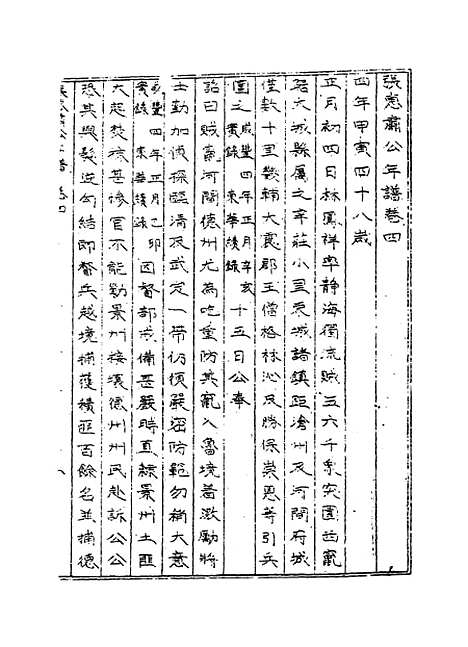 張惠肅公年譜卷四
四年甲寅四十八歲
正月初四日林鳳祥率靜海獨流賊三六千余突圍出竄
踞大城縣屬之辛莊小里東城諸鎮距滄州及河間府城
僅數十里畿輔大震郡王僧格林沁及勝保崇恩等引兵
圍之實錄東華續錄咸豐四年正月辛亥十五日公奉
詔曰賊竄河間德州尤為吃重防其竄入魯境著激勵將
士勤加偵探臨清及武定一帶仍須嚴密防範勿稍大意
實錄東華續錄咸豐四年正月乙卯因督部戒備甚嚴時直隸景州土匪
大起焚掠甚慘官不能勦景州接壤德州州民赴訴公公
恐其與髮逆勾結即督兵越境捕獲積匪百餘名並捕德
張惠肅公年譜卷四